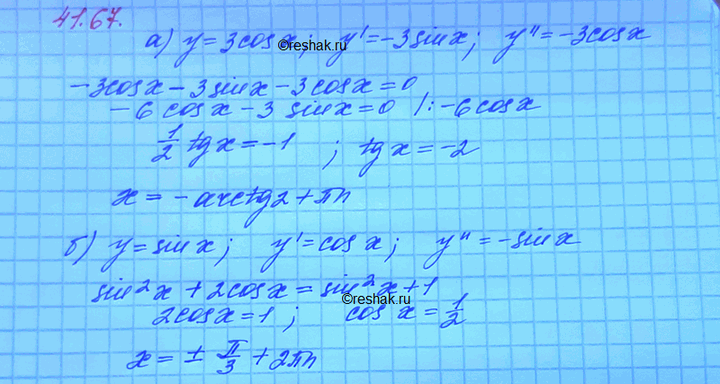 41.67.
а) y = 3cosx; y' = -3sinx; y'' = -3cosx
©reshak.ru
-3cosx - 3sinx - 3cosx = 0
-6cosx - 3sinx = 0 /: -6cosx
1/2 tgx = -1 ; tgx = -2
x = -arctg2 + πn
б) y = sinx; y' = cosx; y'' = -sinx
sin²x + 2cosx = sin²x + 1
©reshak.ru
2cosx = 1 ; cosx = 1/2
x = ± π/3 + 2πn